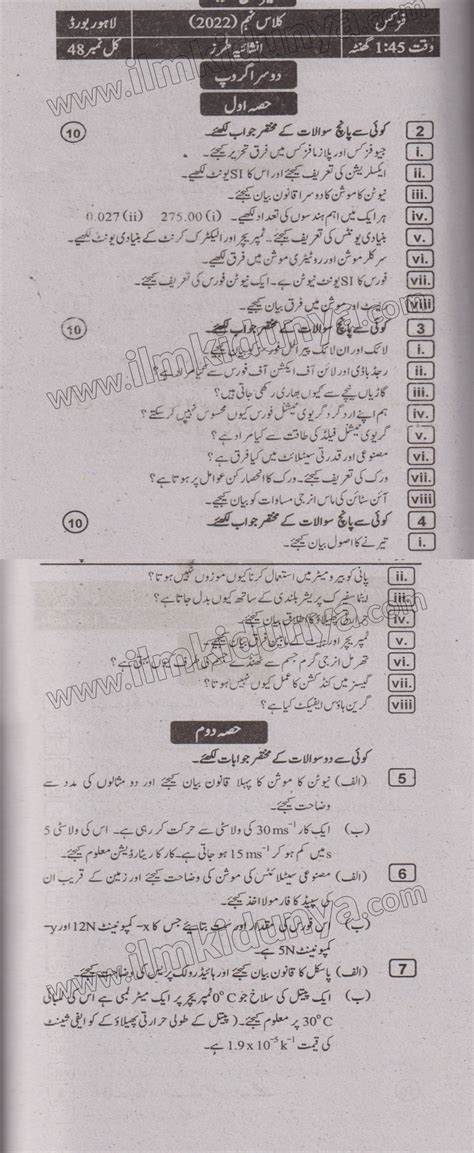 فزکس
کلاس نہم (2022)
لاہور بورڈ
وقت 1:45 گھنٹہ
انشائیہ طرز
کل نمبر 48
دوسرا گروپ
حصہ اول
2 کوئی سے پانچ سوالات کے مختصر جواب لکھئے۔ 10
i. جیوفزکس اور پلازما فزکس میں فرق تحریر کیجئے۔
ii. ایکسلریشن کی تعریف کیجئے اور اس کا SI یونٹ لکھیے۔
iii. نیوٹن کا موشن کا دوسرا قانون بیان کیجئے۔
iv. ہر ایک میں اہم ہندسوں کی تعداد لکھیے۔ 275.00 (i) 0.027 (ii)
v. بنیادی یونٹس کی تعریف کیجئے۔ ٹمپریچر اور الیکٹرک کرنٹ کے بنیادی یونٹ لکھیے۔
vi. سرکلر موشن اور روٹیٹری موشن میں فرق لکھیے۔
vii. فورس کا SI یونٹ نیوٹن ہے۔ ایک نیوٹن فورس کی تعریف کیجئے۔
viii ریسٹ اور موشن میں فرق بیان کیجئے۔
3 کوئی سے پانچ سوالات کے مختصر جواب لکھئے۔ 10
i. لائک اور ان لائک پیرالل فورسز کو بیان کیجئے۔
ii. رجڈ باڈی اور لائن آف ایکشن آف فورس سے کیا مراد ہے؟
iii. گاڑیاں نیچے سے کیوں بھاری رکھی جاتی ہیں؟
iv. ہم اپنے اردگرد گریوی ٹیشنل فورس کیوں محسوس نہیں کر سکتے؟
v. گریوی ٹیشنل فیلڈ کی طاقت سے کیا مراد ہے؟
vi. مصنوعی اور قدرتی سیٹلائٹ میں کیا فرق ہے؟
vii. ورک کی تعریف کیجئے۔ ورک کا انحصار کن عوامل پر ہوتا ہے؟
viii آئن سٹائن کی ماس انرجی مساوات کو بیان کیجئے۔
4 کوئی سے پانچ سوالات کے مختصر جواب لکھئے۔ 10
i. تیرنے کا اصول بیان کیجئے۔
ii. پانی کو بیرومیٹر میں استعمال کرنا کیوں موزوں نہیں ہوتا؟
iii. ایٹماسفیرک پریشر بلندی کے ساتھ کیوں بدل جاتا ہے؟
iv. حرارتی پھیلاؤ کا اطلاق بیان کیجئے۔
v. ٹمپریچر اور ہیٹ کے مابین فرق بیان کیجئے۔
vi. تھرمل انرجی گرم جسم سے ٹھنڈے جسم کی طرف کیوں بہتی ہے؟
vii. گیسز میں کنڈکشن کا عمل کیوں نہیں ہوتا؟
viii گرین ہاؤس ایفیکٹ کیا ہے؟
حصہ دوم
کوئی سے دو سوالات کے مختصر جوابات لکھئے۔
5 (الف) نیوٹن کا موشن کا پہلا قانون بیان کیجئے اور دو مثالوں کی مدد سے
وضاحت کیجئے۔
(ب) ایک کار 30 ms⁻¹ کی ولاسٹی سے حرکت کر رہی ہے۔ اس کی ولاسٹی 5
s میں کم ہو کر 15 ms⁻¹ ہو جاتی ہے۔ کار کا ریٹارڈیشن معلوم کیجئے۔
6 (الف) مصنوعی سیٹلائٹس کی موشن کی وضاحت کیجئے اور زمین کے قریب ان
کی سپیڈ کا فارمولا اخذ کیجئے۔
(ب) اس فورس کی مقدار اور سمت بتائیے جس کا x- کمپونینٹ 12N اور y-
کمپونینٹ 5N ہے۔
7 (الف) پاسکل کا قانون بیان کیجئے اور ہائیڈرولک پریس کی وضاحت کیجئے۔
(ب) ایک پیتل کی سلاخ جو 0°C ٹمپریچر پر ایک میٹر لمبی ہے اس کی لمبائی
30°C پر معلوم کیجئے۔ (پیتل کے طولی حرارتی پھیلاؤ کے کوایفی شینٹ
کی قیمت 1.9 x 10⁻⁵ k⁻¹ ہے۔
www.ilmkidunya.com
www.ilmkidunya.com
www.ilmkidunya.com
www.ilmkidunya.com